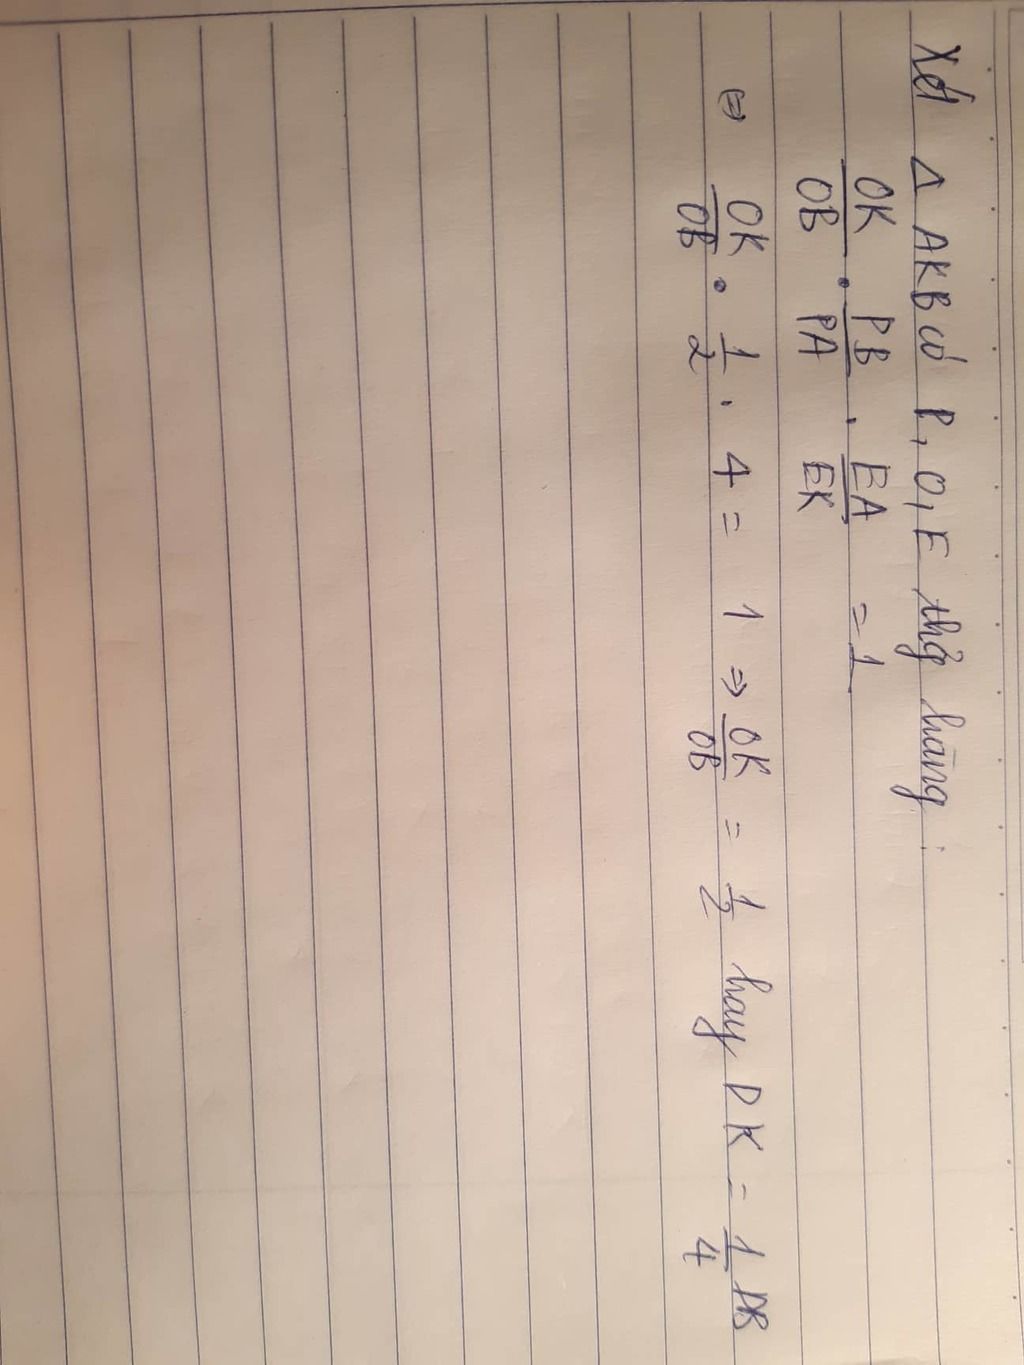 Xét Δ AKB có P, O, E thg hàng:
OK/OB . PB/PA . EA/EK = 1
⇔ OK/OB . 1/2 . 4 = 1 ⇒ OK/OB = 1/2 hay DK = 1/4 DB